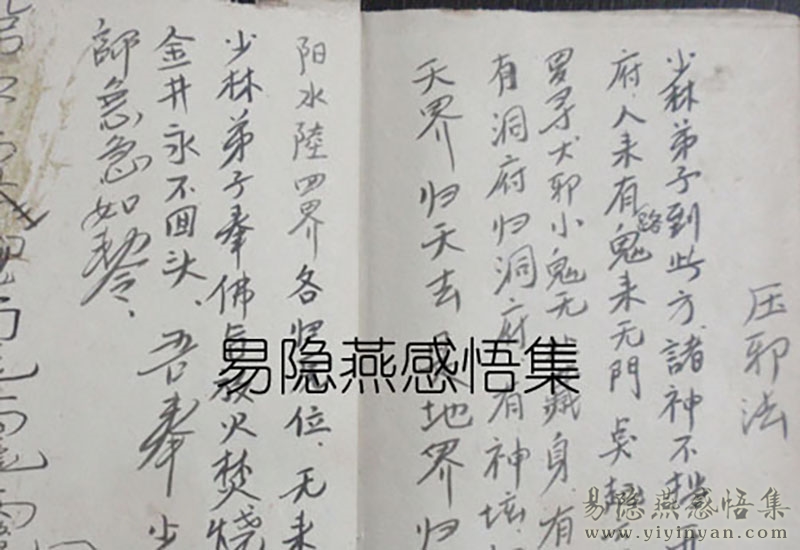 压邪法
少林弟子到此方諸神不
府、人来有路鬼来无門
罗寻犬邪小鬼无 藏身有
有洞府归洞府、有神坛、
天界归天去 地界归
阳水陸四界各归 位、无来
少林弟子奉佛 火焚燒
金井永不回头、吾奉 少
師急急如勅令、
易隐燕感悟集
易隐燕感悟集
www.yiyinyan.com